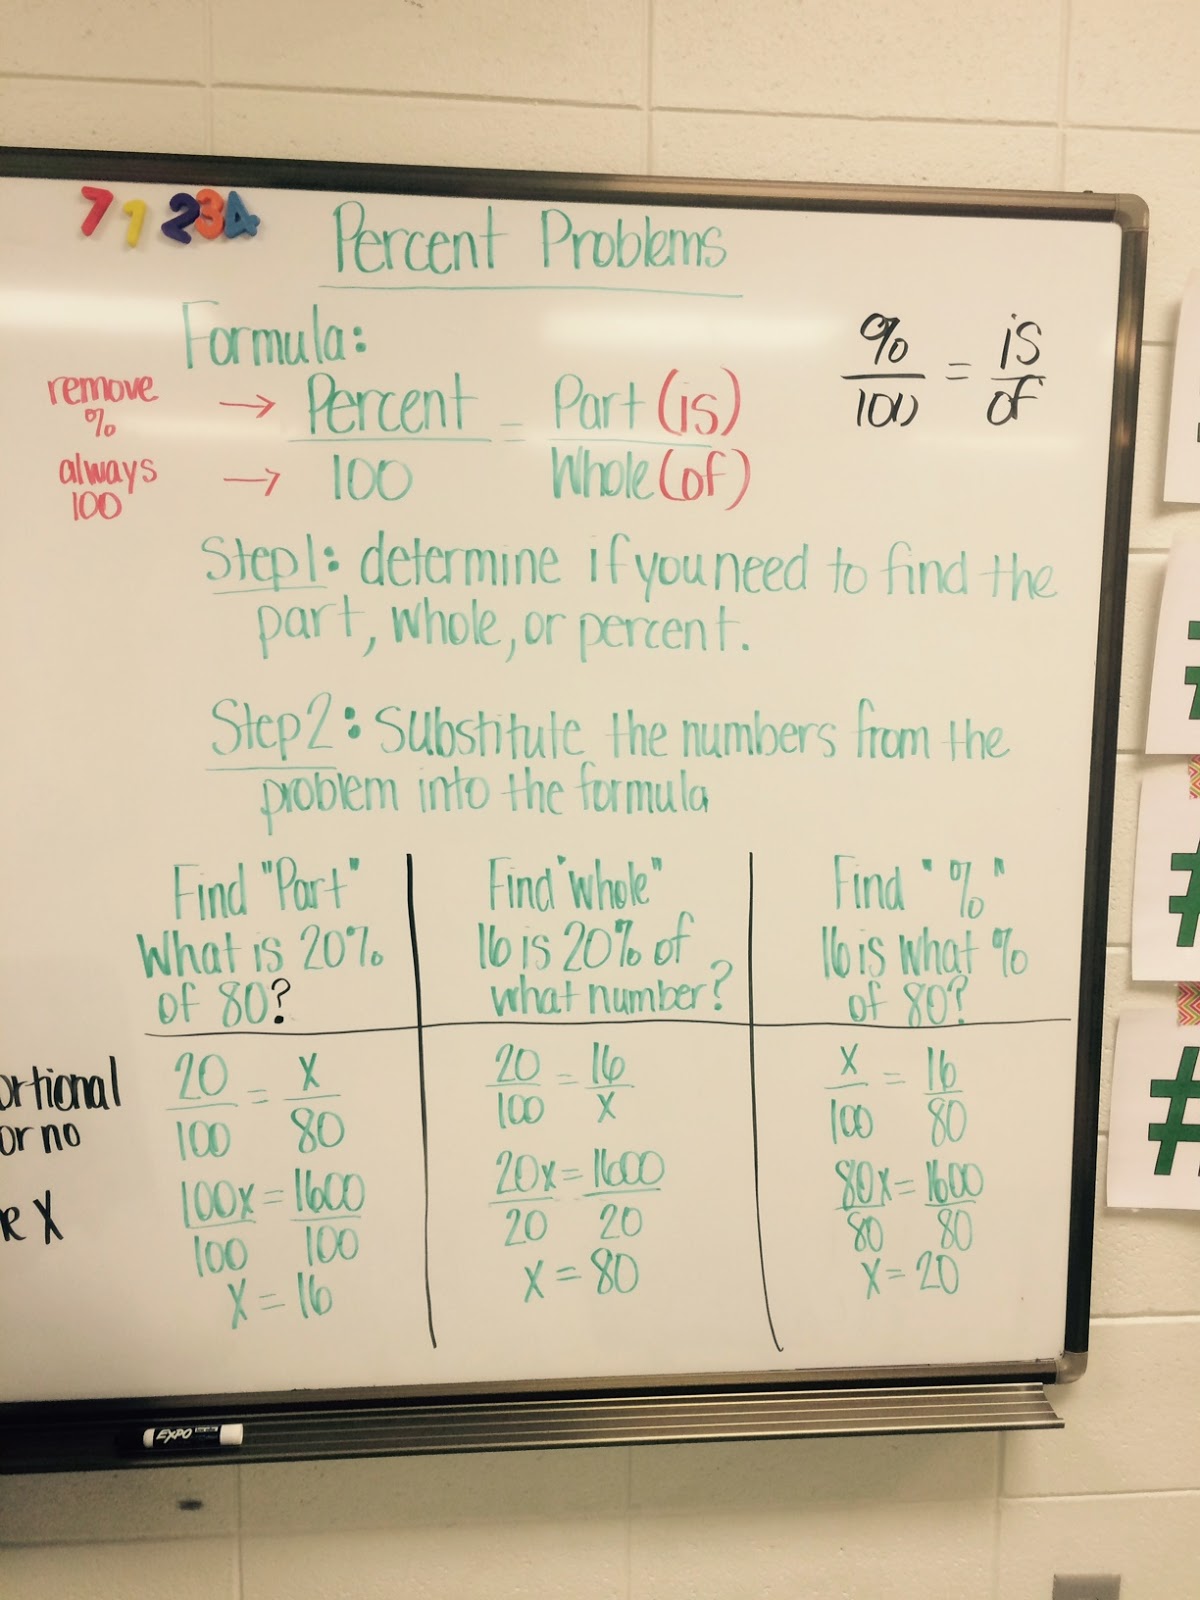 7 1 234
Percent Problems
Formula:
remove
%
→ Percent = Part (is)
always
100
→ 100 Whole (of)
% = is
100 of
Step 1: determine if you need to find the
part, whole, or percent.
Step 2: Substitute the numbers from the
problem into the formula
Find "Part"
What is 20%
of 80?
20 = x
100 80
100x = 1600
100 100
x = 16
Find "whole"
16 is 20% of
what number?
20 = 16
100 x
20x = 1600
20 20
x = 80
Find "%"
16 is what %
of 80?
x = 16
100 80
80x = 1600
80 80
x = 20
ortional
or no
x
EXPO
#
#
#